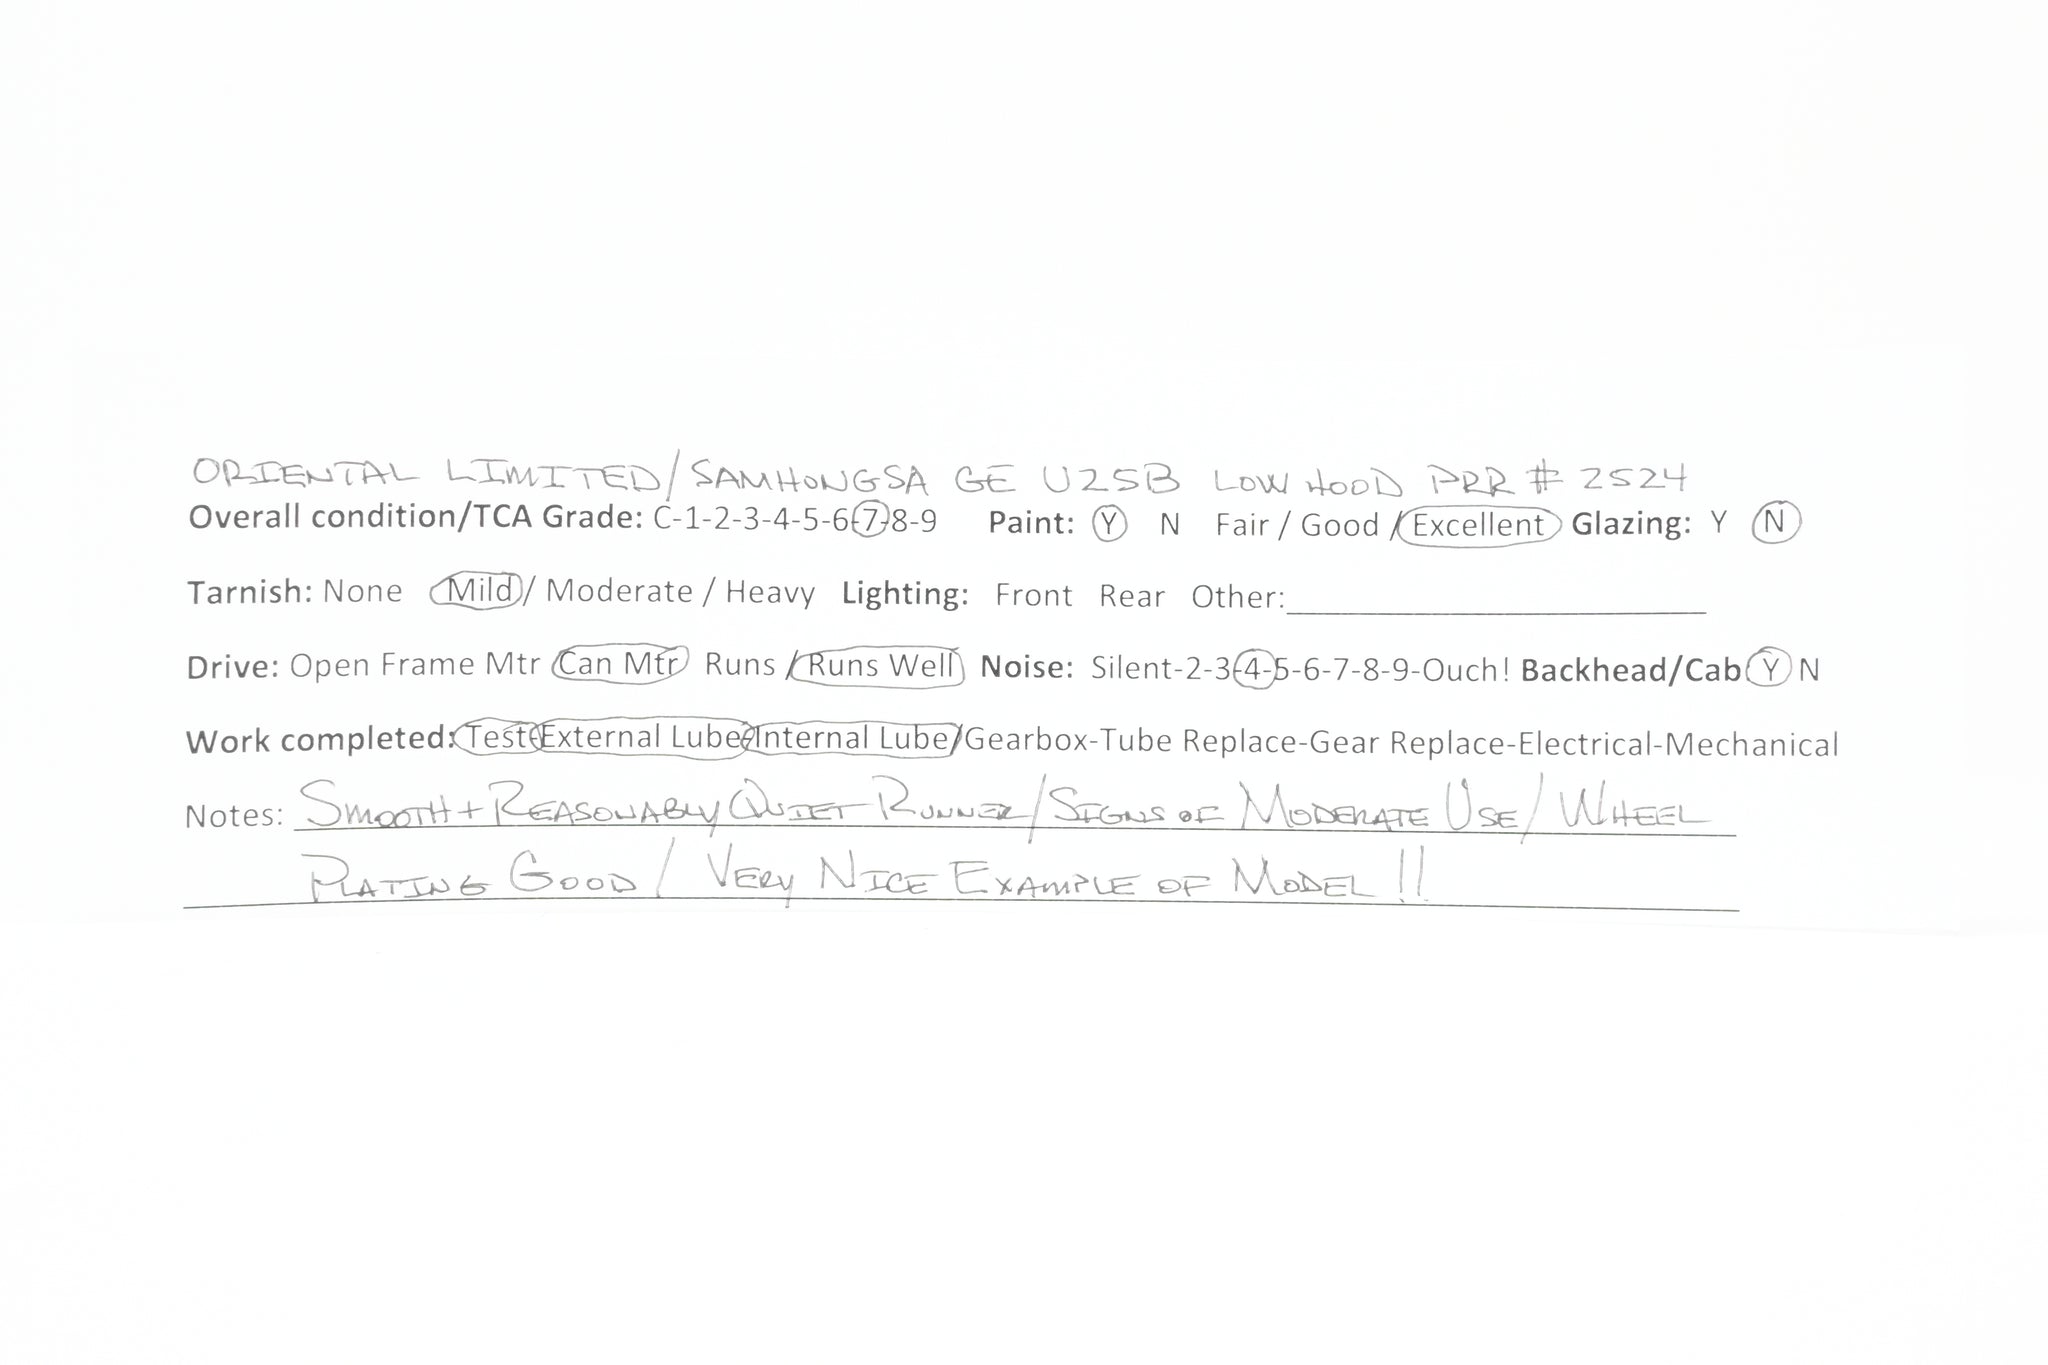 ORIENTAL LIMITED/SAMHONGSA GE U25B LOW HOOD PRR # 2524
Overall condition/TCA Grade: C-1-2-3-4-5-6-7-8-9 Paint: Y N Fair / Good / Excellent Glazing: Y N
Tarnish: None Mild / Moderate / Heavy Lighting: Front Rear Other:
Drive: Open Frame Mtr Can Mtr Runs / Runs Well Noise: Silent-2-3-4-5-6-7-8-9-Ouch! Backhead/Cab Y N
Work completed: Test-External Lube-Internal Lube/Gearbox-Tube Replace-Gear Replace-Electrical-Mechanical
Notes: SMOOTH + REASONABLY QUIET RUNNER/SIGNS OF MODERATE USE/WHEEL
PLATING GOOD/ VERY NICE EXAMPLE OF MODEL!!